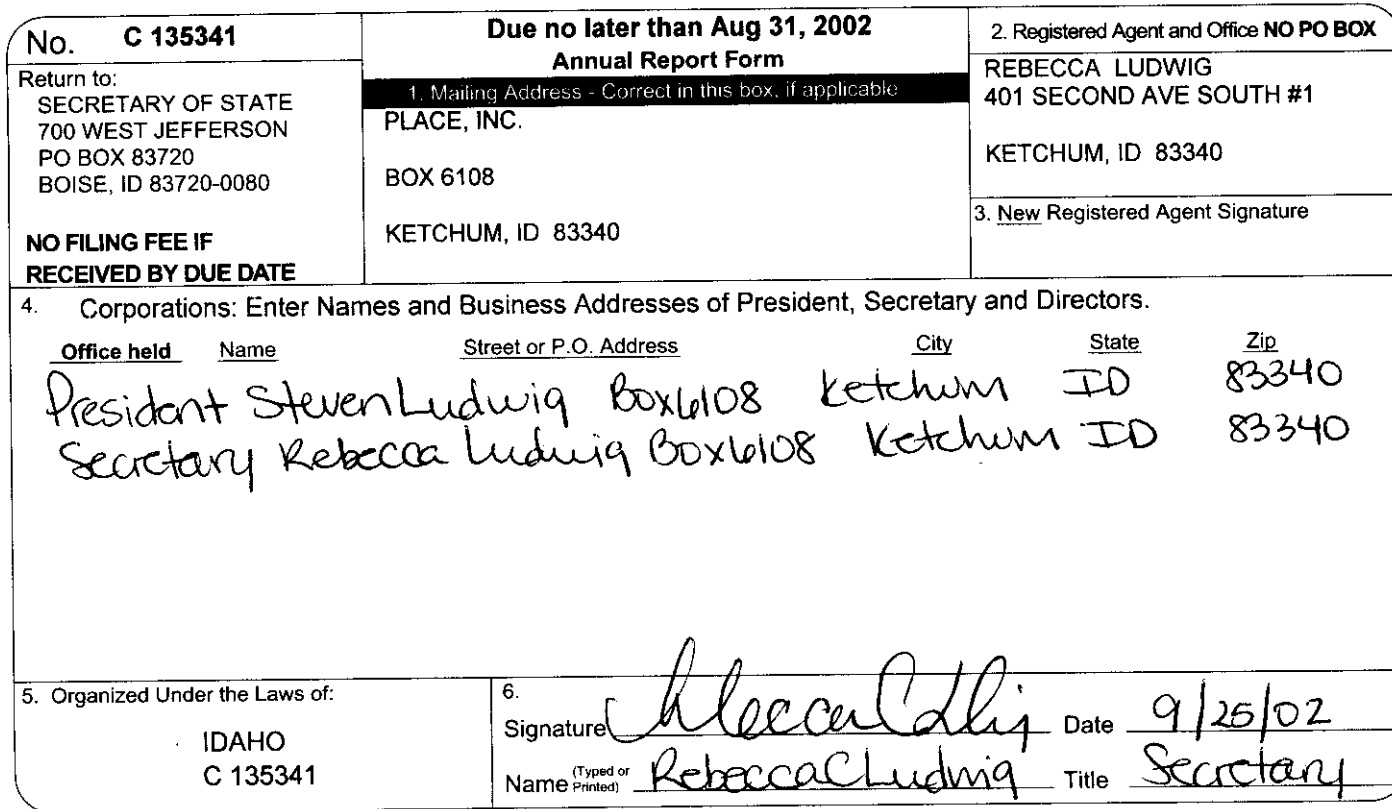 No. C 135341
Return to:
SECRETARY OF STATE
700 WEST JEFFERSON
PO BOX 83720
BOISE, ID 83720-0080
NO FILING FEE IF
RECEIVED BY DUE DATE
Due no later than Aug 31, 2002
Annual Report Form
1. Mailing Address - Correct in this box, if applicable
PLACE, INC.
BOX 6108
KETCHUM, ID 83340
2. Registered Agent and Office NO PO BOX
REBECCA LUDWIG
401 SECOND AVE SOUTH #1
KETCHUM, ID 83340
3. New Registered Agent Signature
4. Corporations: Enter Names and Business Addresses of President, Secretary and Directors.
Office held Name Street or P.O. Address City State Zip
President Steven Ludwig Box 6108 Ketchum ID 83340
Secretary Rebecca Ludwig Box 6108 Ketchum ID 83340
5. Organized Under the Laws of:
IDAHO
C 135341
6.
Signature Rebecca C Ludwig Date 9/25/02
Name (Typed or Printed) Rebecca C Ludwig Title Secretary